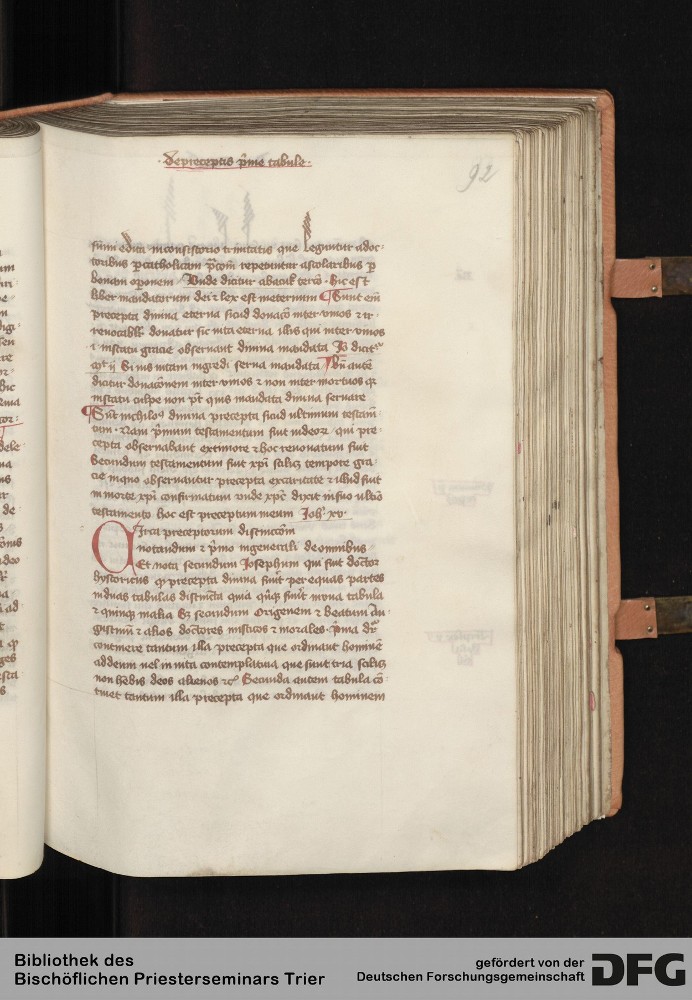 de preceptis p̄me tabule
92
sūm edita in consistorio trinitatis que leguntur a doc-
toribus p catholicam p̄cōm repetuntur a scolaribus p
bonam oponem Unde dicitur abacuk tercō hic est
liber mandatorum dei et lex est in eternum Sunt em̄
precepta divina eterna sicud donacō inter vivos et ir-
revocabilr donatur sic vita eterna illis qui inter vivos
i instatu gracie observant divina mandata Iō dicit
Si vis vitam ingredi serva mandata bn̄ aute
dicitur donacōnem inter vivos et non inter mortuos q
in statu culpe non pt quis mandata divina servare
Sūt nichilo divina precepta sicud ultimum testam̄-
tum Nam p̄mum testamentum fuit iudeor qui pre-
cepta observabant ex timore et hoc renovatum fuit
Secundum testamentum fuit xpi scilicet tempore gra-
cie in quo observantur precepta ex caritate et illud fuit
in morte xpi confirmatum unde xpc dixit in suo ultiō
testamento hoc est preceptum meum Joh xv
Circa preceptorum distinccōm
notandum et p̄mo in generali de omnibus
Et nota secundum Josephum qui fuit doctor
hystoricus q precepta divina fuūt per equas partes
in duas tabulas distincta quia qūq fuūt in una tabula
et quinq in alia Sz secundum Origenem et beatum Au-
gustinū et alios doctores misticos et morales p̄ma dr
continere tantum illa precepta que ordinant hominē
ad deum vel in vita contemplativa que sunt tria scilicet
non hēbis deos alienos etc Secunda autem tabula cō-
tinet tantum illa precepta que ordinant hominem
Bibliothek des
Bischöflichen Priesterseminars Trier
gefördert von der
Deutschen Forschungsgemeinschaft
DFG